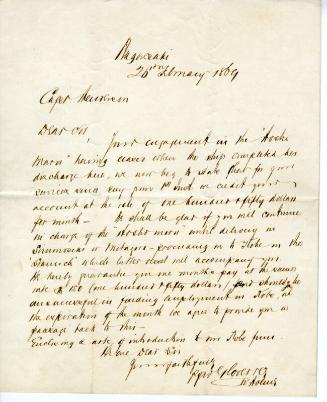 Nagasaki
20th February 1869
Capt
Dear Sir
Your engagement in the "Hosho
Maru" having ceased when the ship completed her
discharge here, we now beg to state that for your
services since 1st inst we credit your
account at the rate of one hundred & fifty dollars
per month— We shall be glad if you will continue
in charge of the "Hosho Maru" until delivery in
or proceeding on to Kobe in the
which latter vessel will accompany you.
We hereby guarantee you one months pay at the same
rate $150 (one hundred & fifty dollars) & should you
be unsuccessful in finding employment in Kobe, at
the expiration of the month we agree to provide you a
passage back to this—
Enclosing a note of introduction to our Kobe firm.
We are Dear Sir
Yours faithfully
Glover & Co